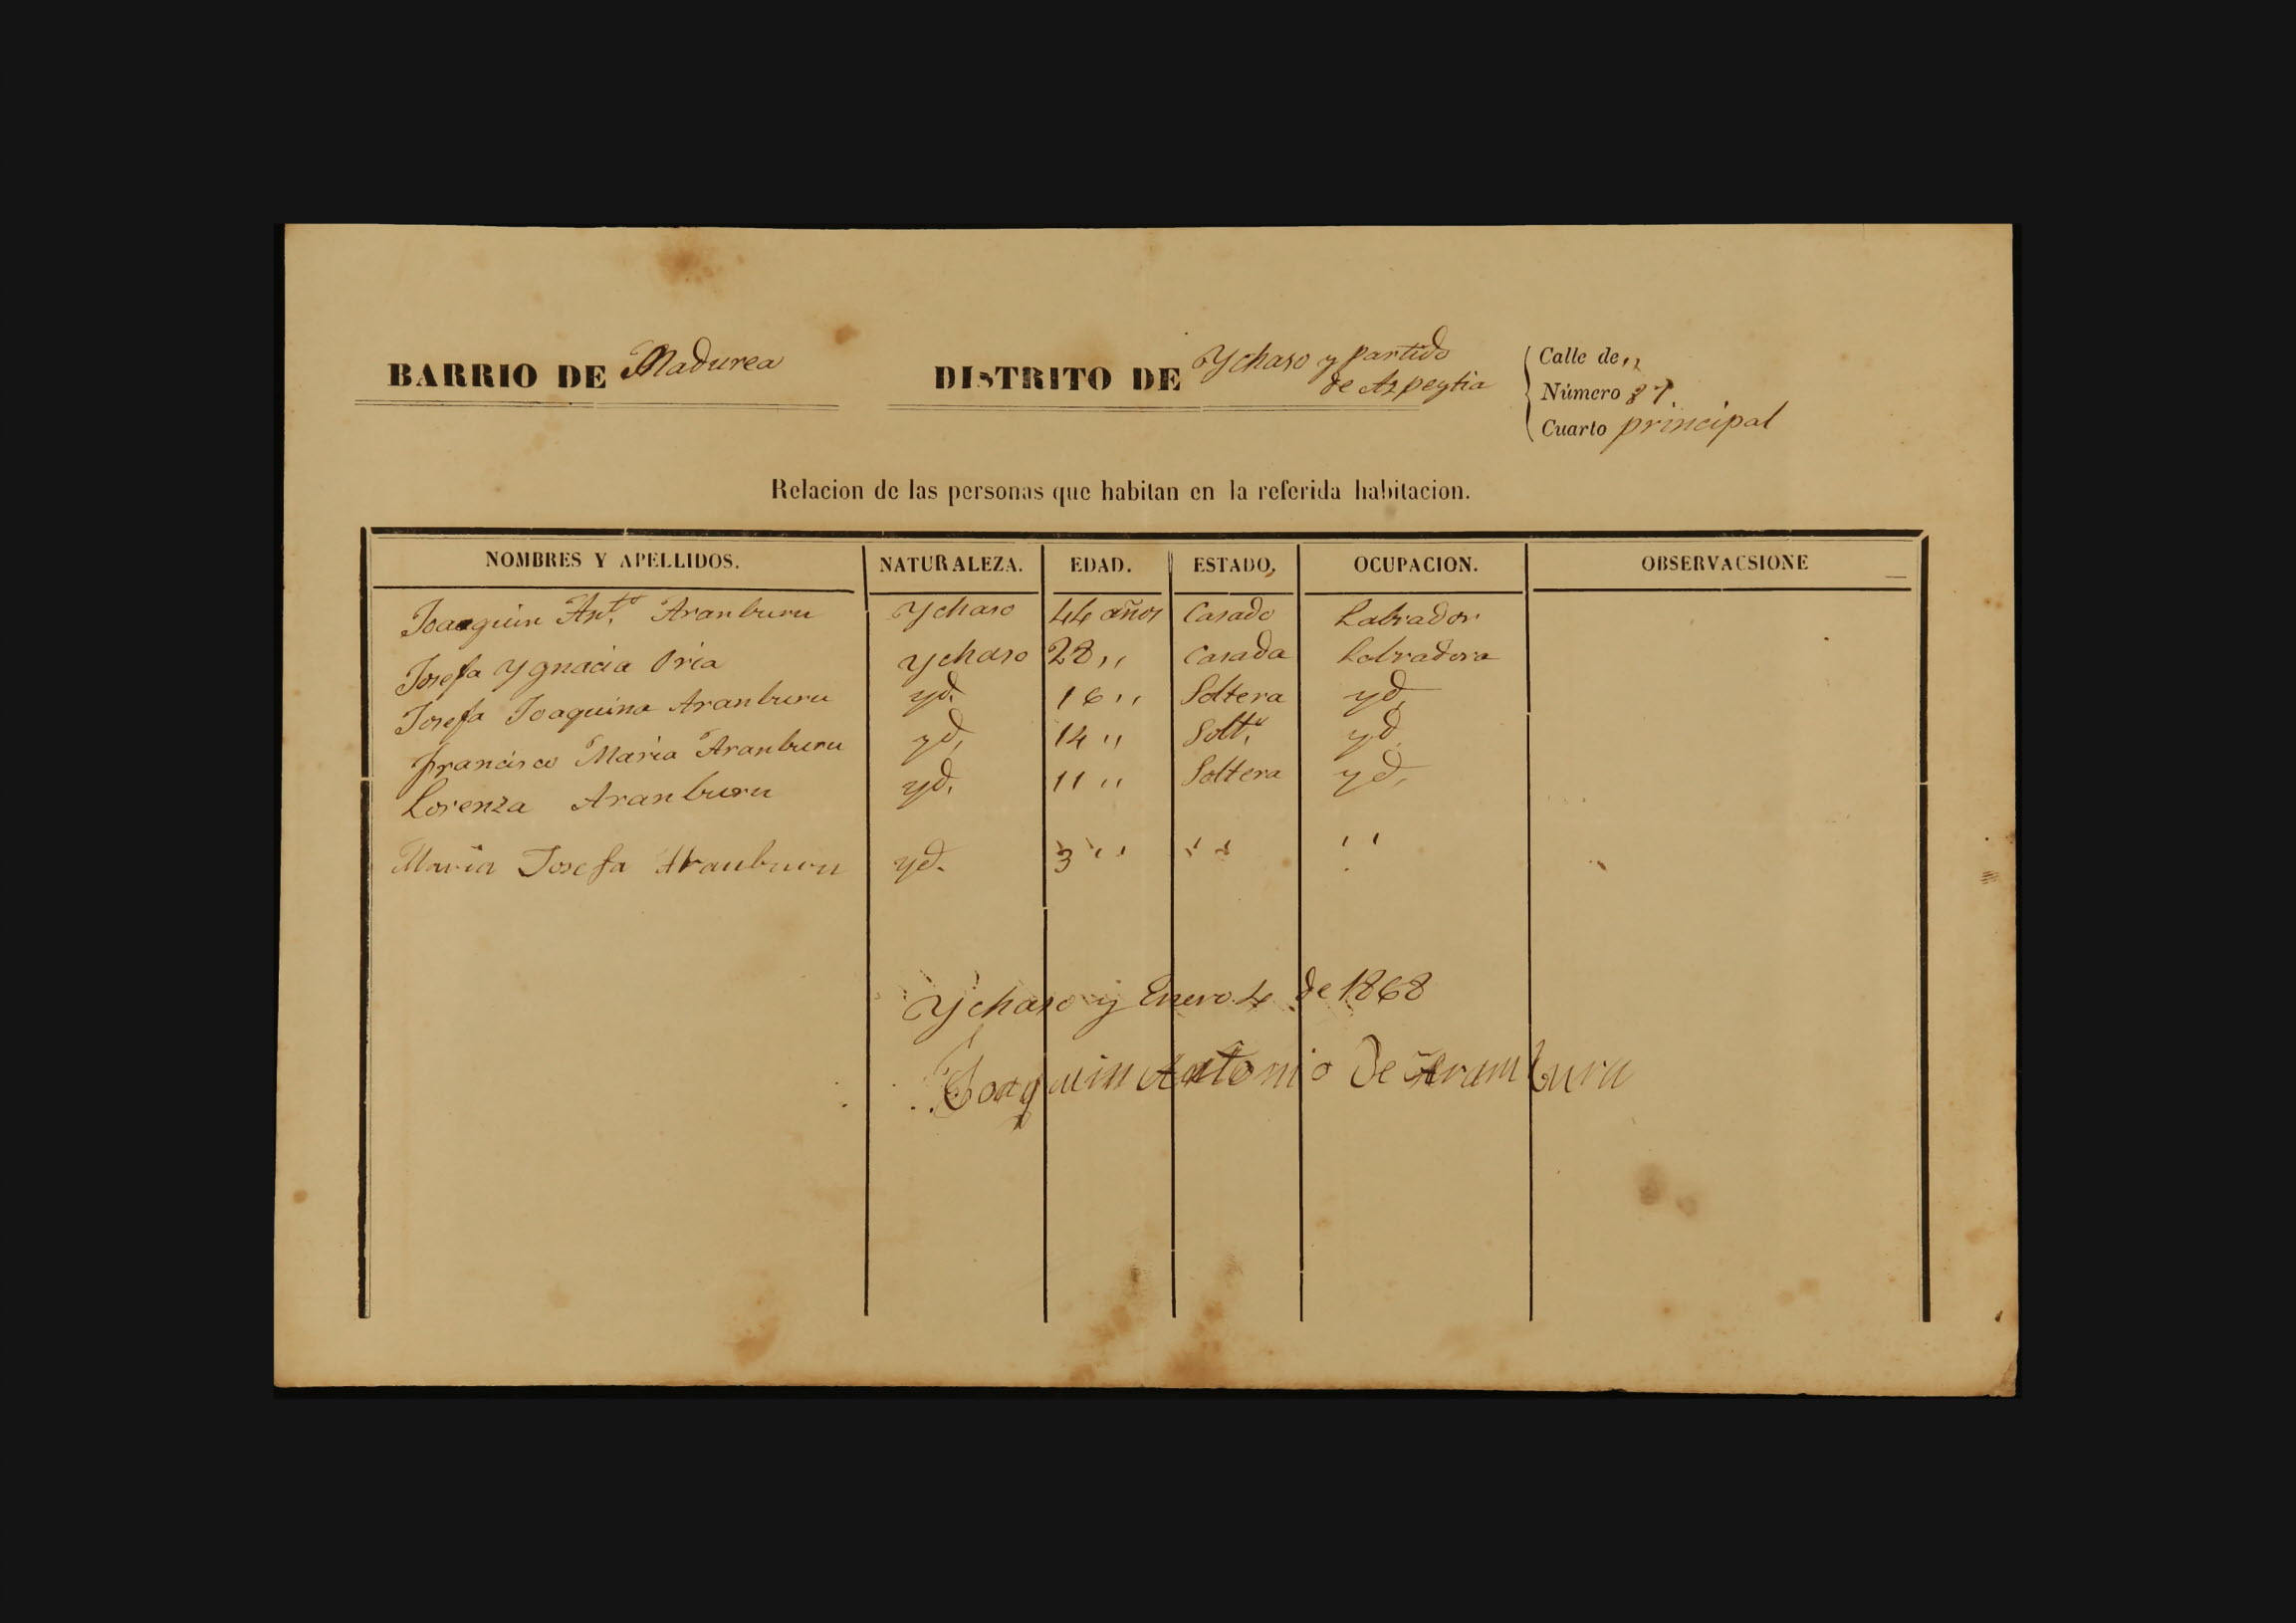 BARRIO DE Madurea
DISTRITO DE Ychaso y partido
de Azpeytia
Calle de,,
Número 87.
Cuarto principal
Relacion de las personas que habitan en la referida habitacion.
NOMBRES Y APELLIDOS. NATURALEZA. EDAD. ESTADO, OCUPACION. OBSERVACSIONE
Joaquin Ant.º Aranburu Ychaso 44 años Casado Labrador
Josefa Ygnacia Oria Ychaso 28,, Casada Labradora
Josefa Joaquina Aranburu yd. 16,, Soltera yd,
Francisco Maria Aranburu yd, 14 ,, Solt.º yd
Lorenza Aranburu yd. 11 ,, Soltera yd,
Maria Josefa Aranburu yd. 3 ,, ,, ,,
Ychaso y Enero 4 de 1868
Joaquin Antonio De Aramburu